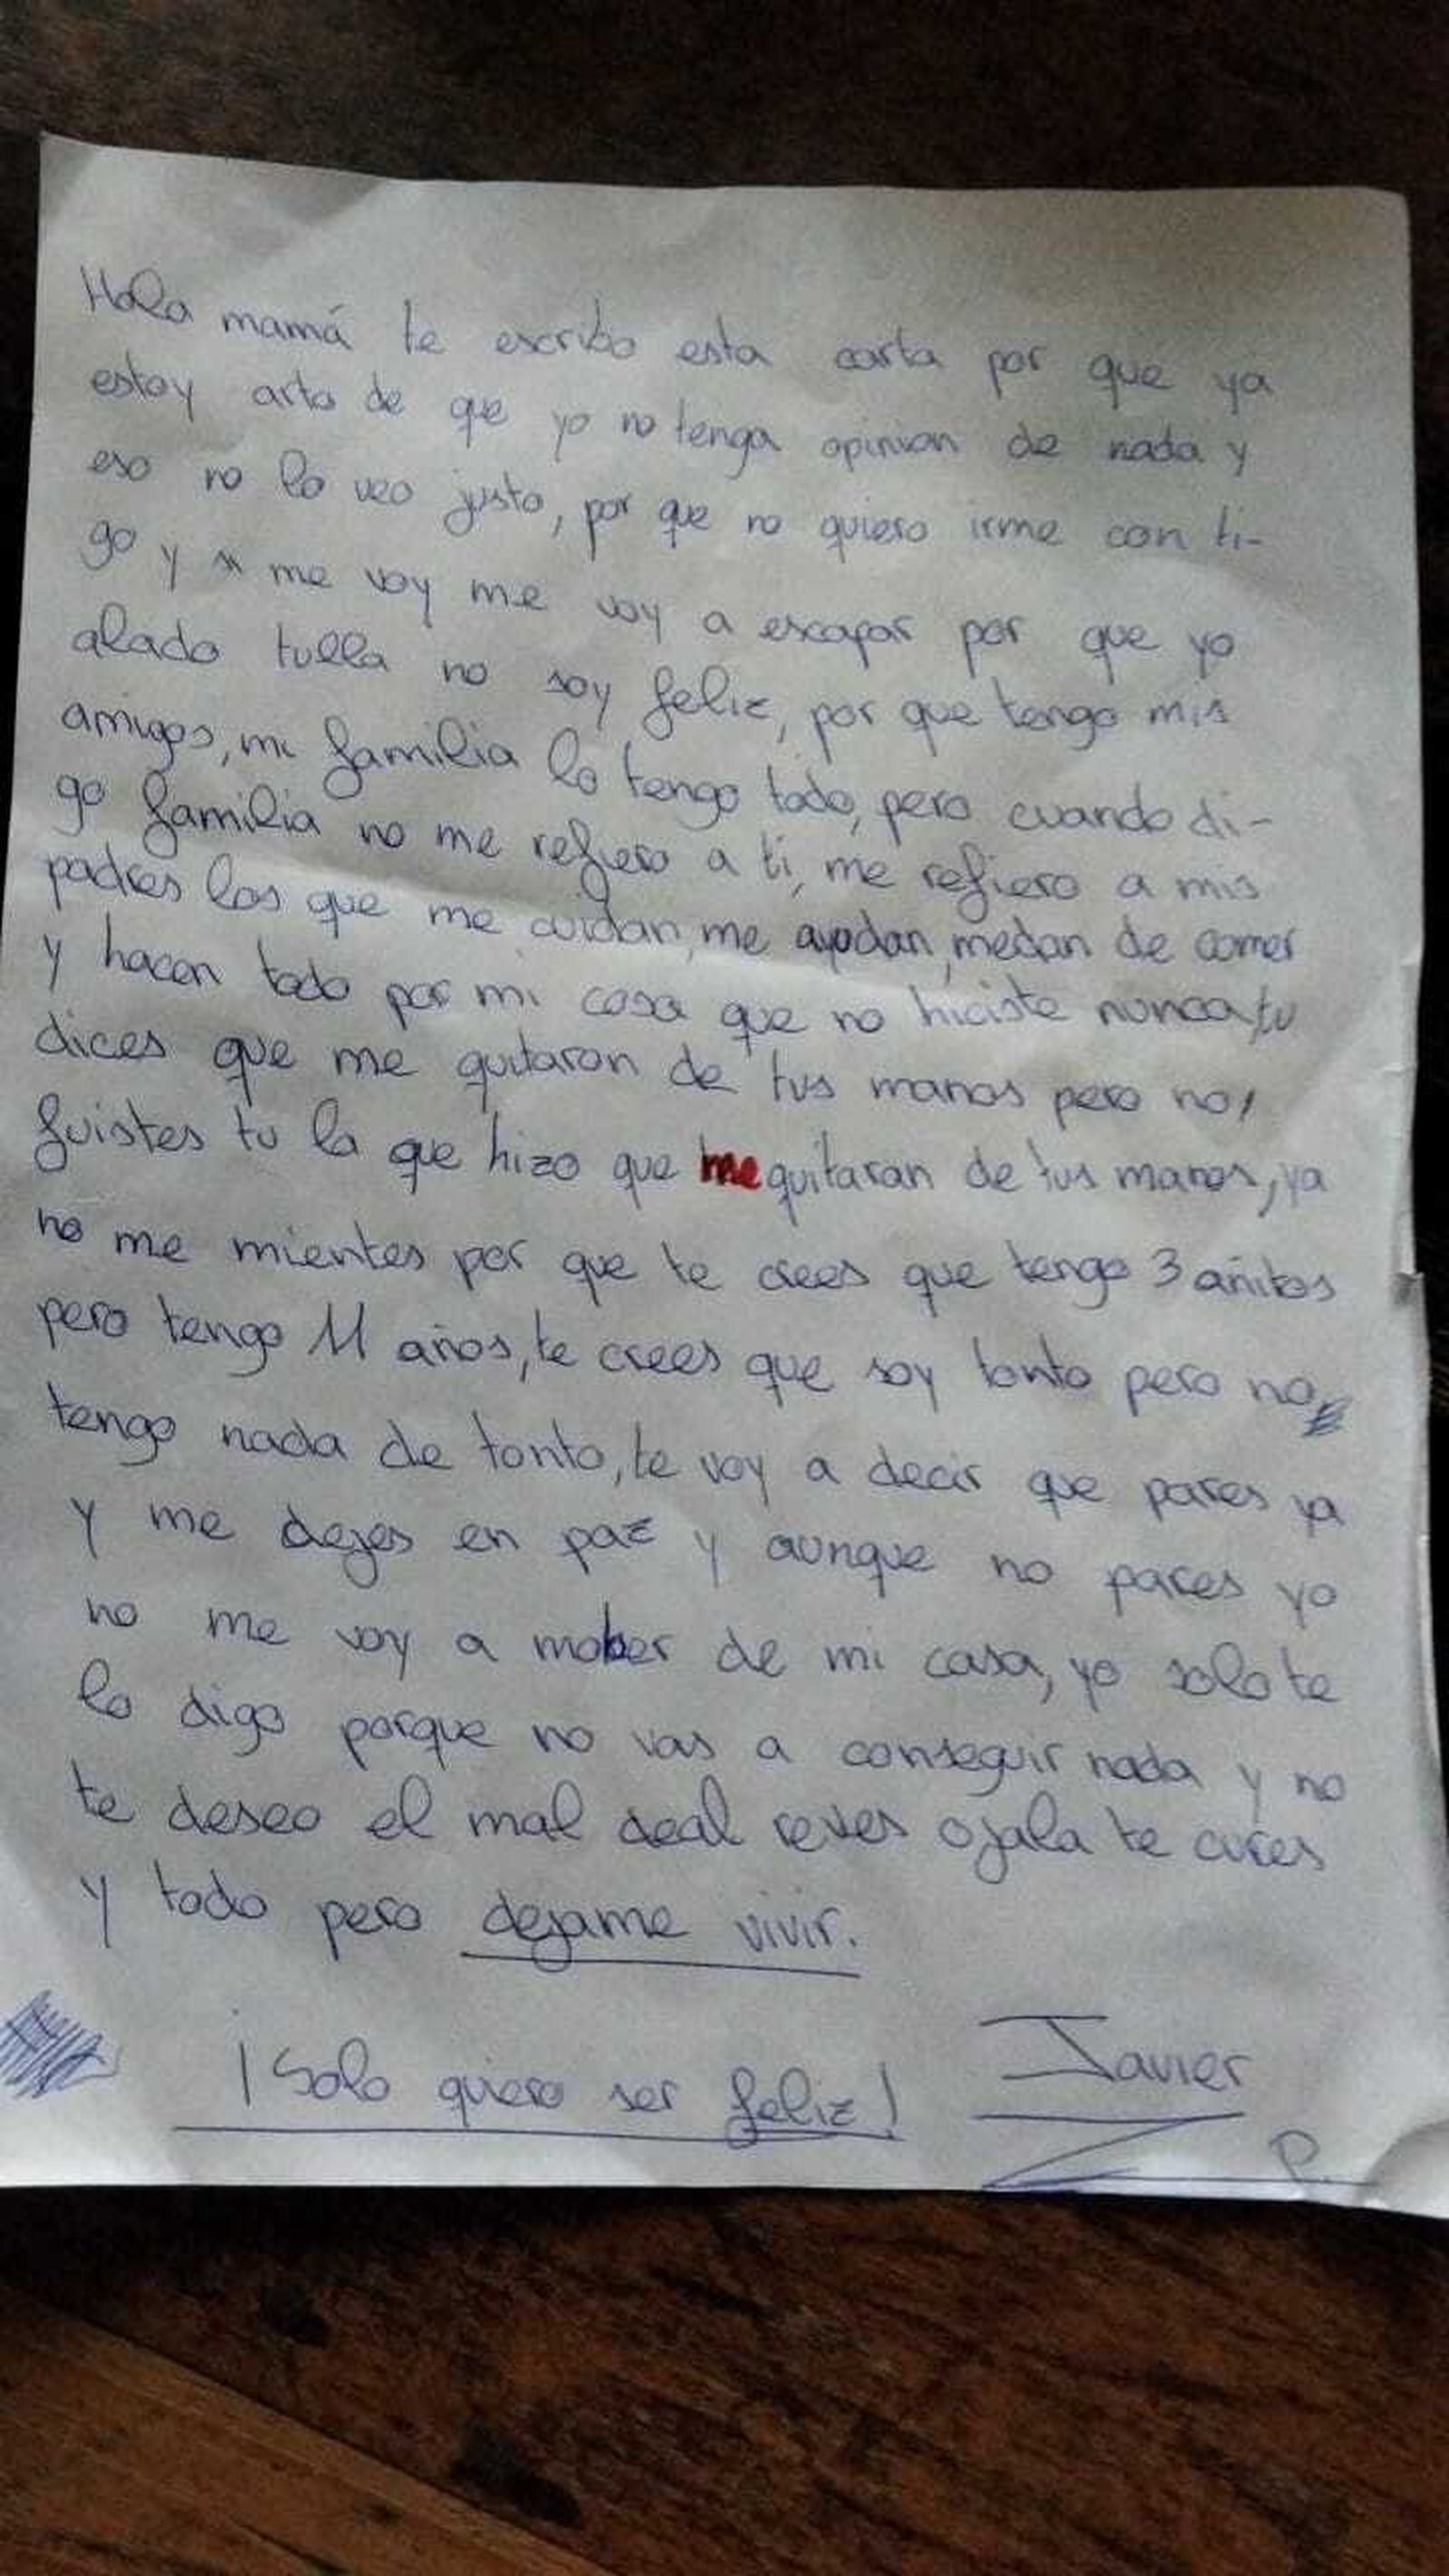 Hola mamá te escribo esta carta por que ya
estoy arto de que yo no tenga opinion de nada y
eso no lo veo justo, por que no quiero irme con ti-
go y me voy me voy a escapar por que yo
alado tulla no soy feliz, por que tengo mis
amigos, mi familia lo tengo todo, pero cuando di-
go familia no me refiero a ti, me refiero a mis
padres los que me cuidan, me ayudan, medan de comer
y hacen todo por mi cosa que no hiciste nunca, tu
dices que me quitaron de tus manos pero no,
fuistes tu la que hizo que me quitaran de tus manos, ya
no me mientes por que te crees que tengo 3 añitos
pero tengo 11 años, te crees que soy tonto pero no
tengo nada de tonto, te voy a decir que pares ya
y me dejes en paz y aunque no pares yo
no me voy a mober de mi casa, yo solo te
lo digo porque no vas a conseguir nada y no
te deseo el mal deal reves ojala te cures
y todo pero dejame vivir.
¡Solo quiero ser feliz! Javier
P.